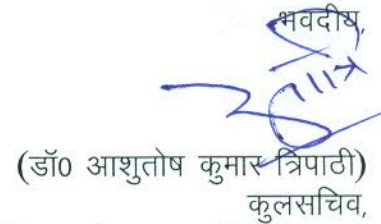 भवदीय,
(डॉ0 आशुतोष कुमार त्रिपाठी)
कुलसचिव,